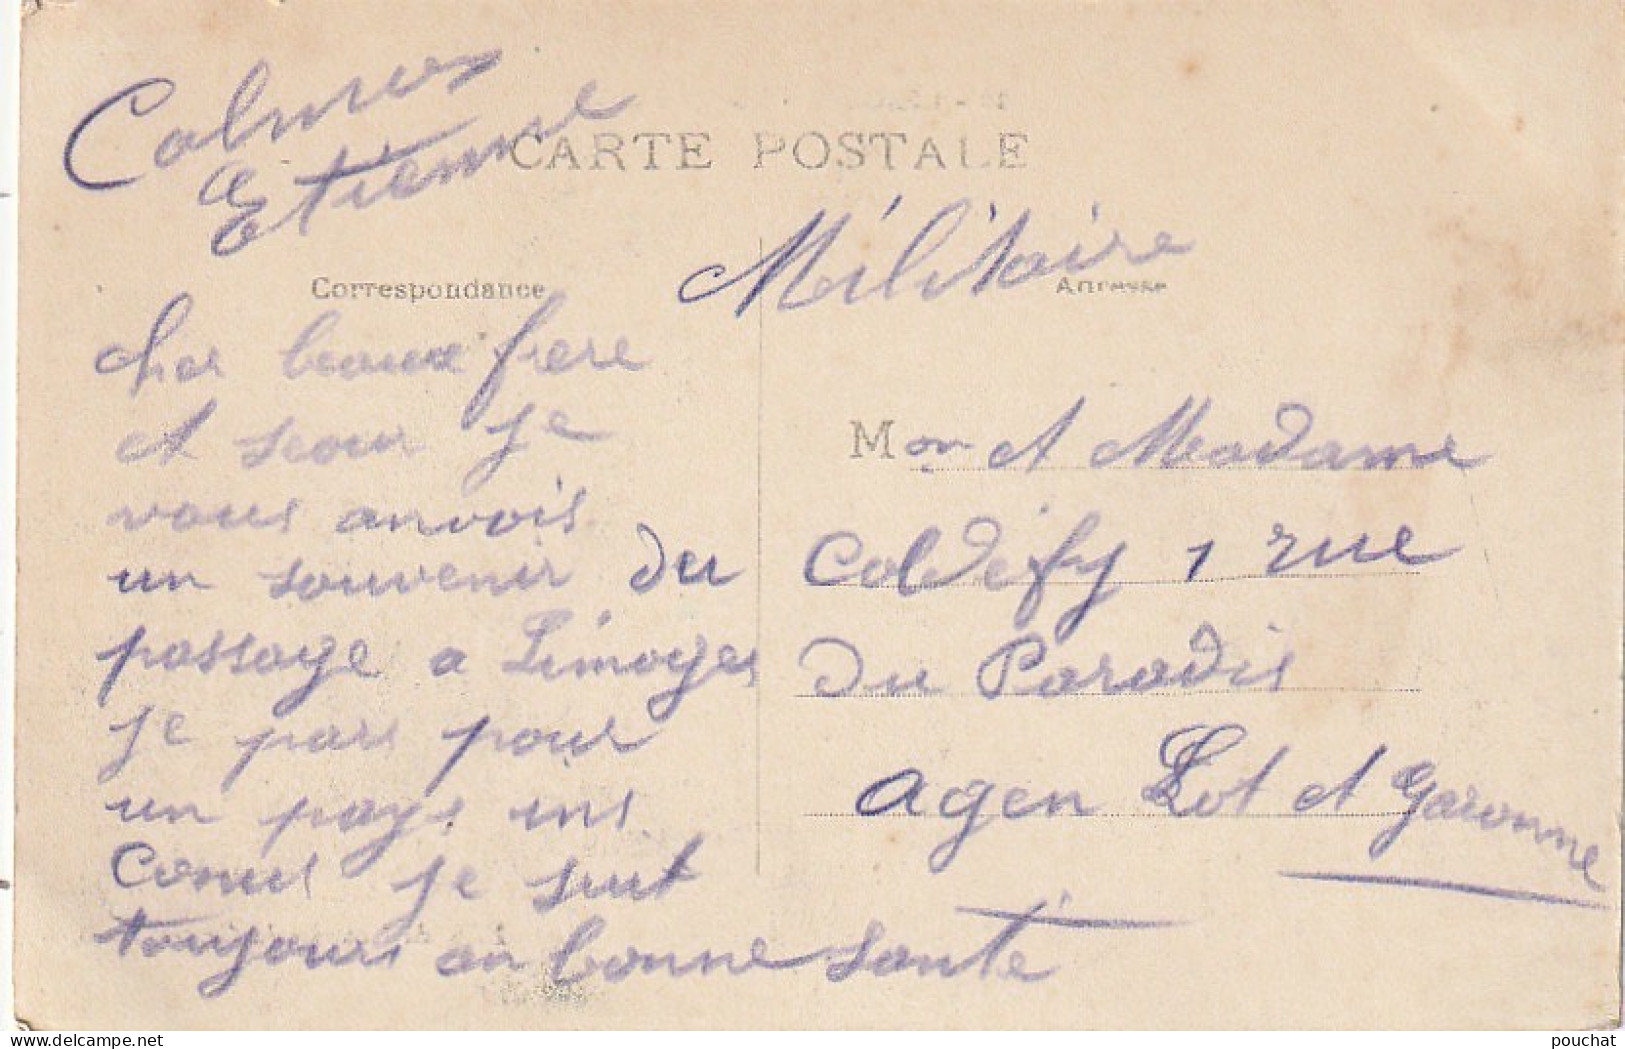 Calmes
Etienne
CARTE POSTALE
Militaire
Correspondance
Adresse
cher beaux frere
et seour je
vous anvois
un souvenir du
passage a Limoges
je pars pour
un pays ins
Conus je suit
toujours an bonne santé
Mon et Madame
Coldefy 1 rue
du Paradis
agen Lot et Garonne
pouchat